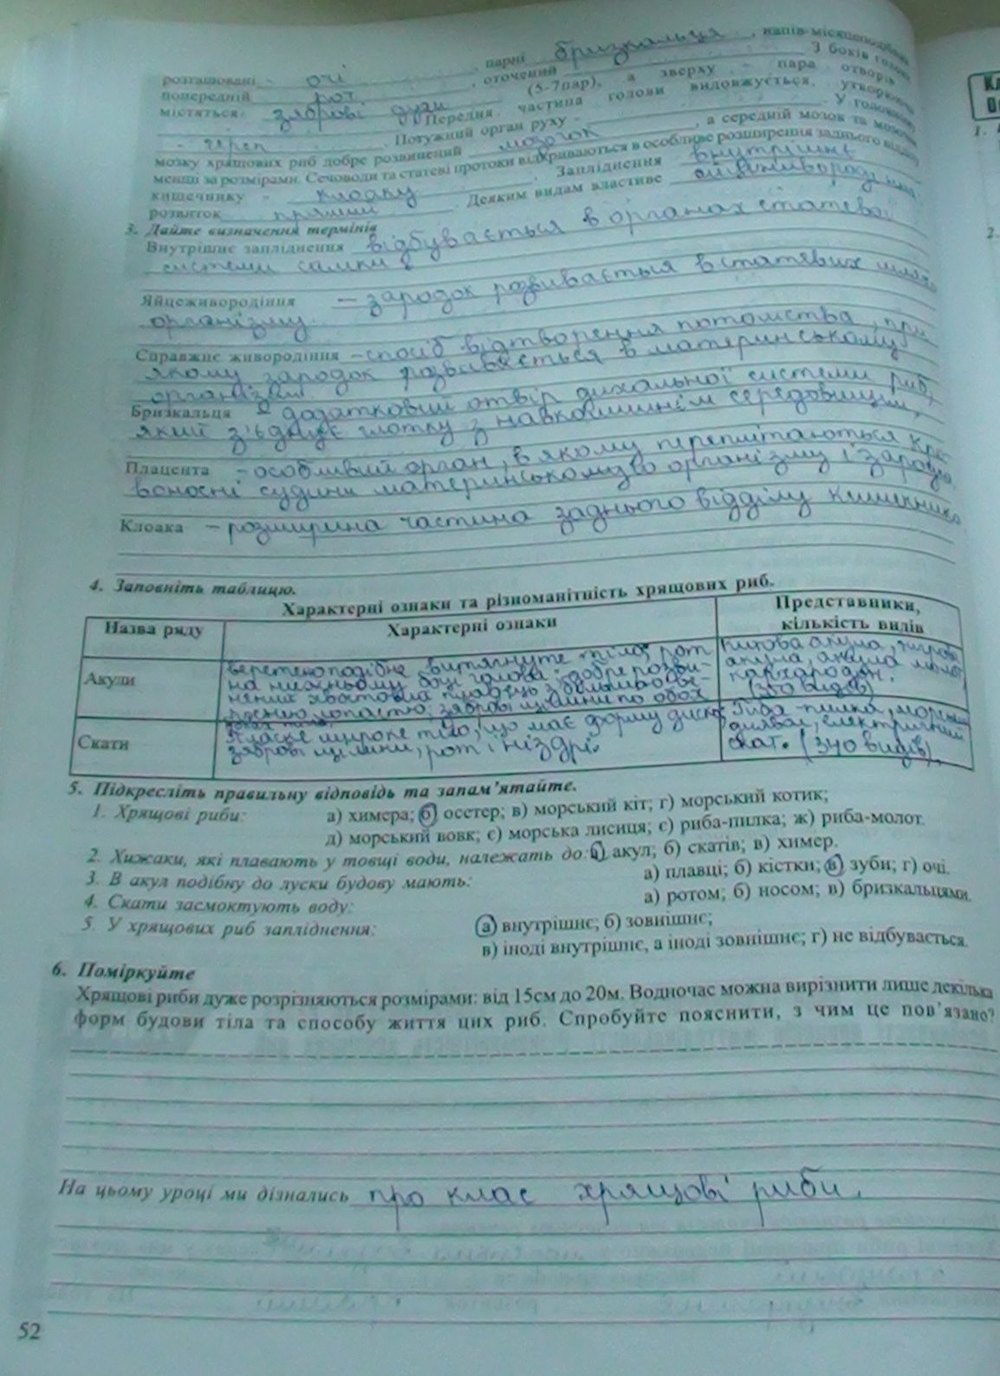 розташовані - очі, парні бризкальця, напів-місяцеподібний
попередній рот, оточений З боків голови
містяться зяброві дуги (5-7пар), а зверху - пара отворів
Передня частина голови видовжується, утворюючи
- череп. Потужний орган руху - У головному
мозку хрящових риб добре розвинений мозочок, а середній мозок та
менші за розмірами. Сечоводи та статеві протоки відкриваються в особливе розширення заднього відділу
кишечнику - клоаку. Запліднення внутрішнє
розвиток прямий. Деяким видам властиве
3. Дайте визначення термінів
Внутрішнє запліднення відбувається в органах статевої
системи самки
Яйцеживородіння - зародок розвивається в статевих шляхах
організму
Справжнє живородіння - спосіб відтворення потомства, при
якому зародок розвивається в материнському
організмі
Бризкальця - додатковий отвір дихальної системи риб,
який з'єднує глотку з навколишнім середовищем,
Плацента - особливий орган, в якому переплітаються кро-
воносні судини материнського організму і зародка
Клоака - розширина частина заднього відділу кишечника
4. Заповніть таблицю.
Характерні ознаки та різноманітність хрящових риб.
Назва ряду Характерні ознаки Представники, кількість видів
Акули веретеноподібне витягнуте тіло, рот
на нижньому боці голова, добре розви-
нений хвостовий плавець з більшою
лопастю; зяброві щілини по обох
Китова акула,
акула, акула молот,
кархародон.
(350 видів)
Скати Пласке широке тіло, що має форму диска
зяброві щілини, рот і ніздрі.
Риба-пилка, морський
диявол, електричний
скат. (340 видів).
5. Підкресліть правильну відповідь та запам’ятайте.
1. Хрящові риби: а) химера; б) осетер; в) морський кіт; г) морський котик;
д) морський вовк; є) морська лисиця; є) риба-пилка; ж) риба-молот.
2. Хижаки, які плавають у товщі води, належать до: а) акул; б) скатів; в) химер.
3. В акул подібну до луски будову мають: а) плавці; б) кістки; в) зуби; г) очі.
4. Скати засмоктують воду: а) ротом; б) носом; в) бризкальцями.
5. У хрящових риб запліднення: а) внутрішнє; б) зовнішнє;
в) іноді внутрішнє, а іноді зовнішнє; г) не відбувається.
6. Поміркуйте
Хрящові риби дуже розрізняються розмірами: від 15см до 20м. Водночас можна вирізнити лише декілька
форм будови тіла та способу життя цих риб. Спробуйте пояснити, з чим це пов’язано?
На цьому уроці ми дізнались про клас хрящові риби.
52